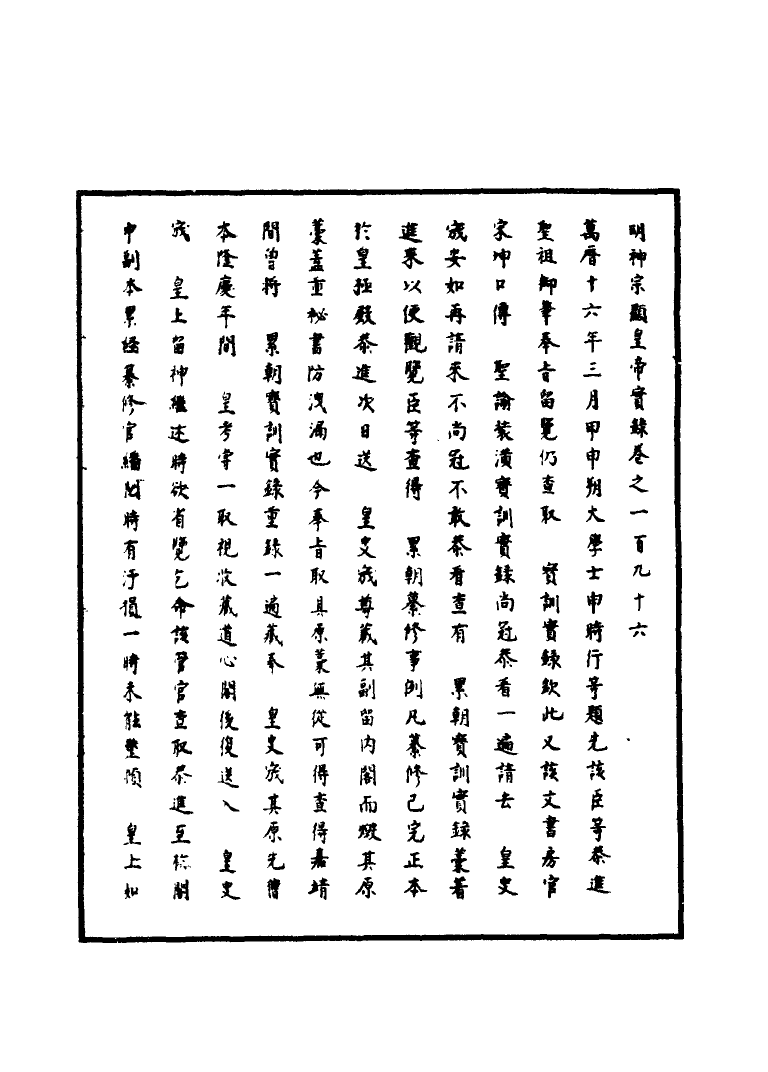 明神宗顯皇帝實錄卷之一百九十六
萬曆十六年三月甲申朔大學士申時行等題先該臣等恭進
聖祖御筆奉旨留覽仍查取　寶訓實錄欽此又該文書房官
宋坤口傳　聖諭裝潢寶訓實錄尚冠恭看一遍請去　皇史
宬安如再請來不尚冠不敢恭看查有　累朝寶訓實錄藁着
進來以便觀覽臣等查得　累朝纂修事例凡纂修已完正本
於皇極殿恭進次日送　皇史宬尊藏其副留內閣而燬其原
藁蓋重秘書防洩漏也今奉旨取具原藁無從可得查得嘉靖
間曾將　累朝寶訓實錄重錄一遍藏奉　皇史宬其原先謄
本隆慶年間　皇考嘗一取視收藏道心閣後復送入　皇史
宬　皇上留神繼述時欲省覽乞命該管官查取恭進至於閣
中副本累經纂修官繙閱時有汙損一時未能整頓　皇上如